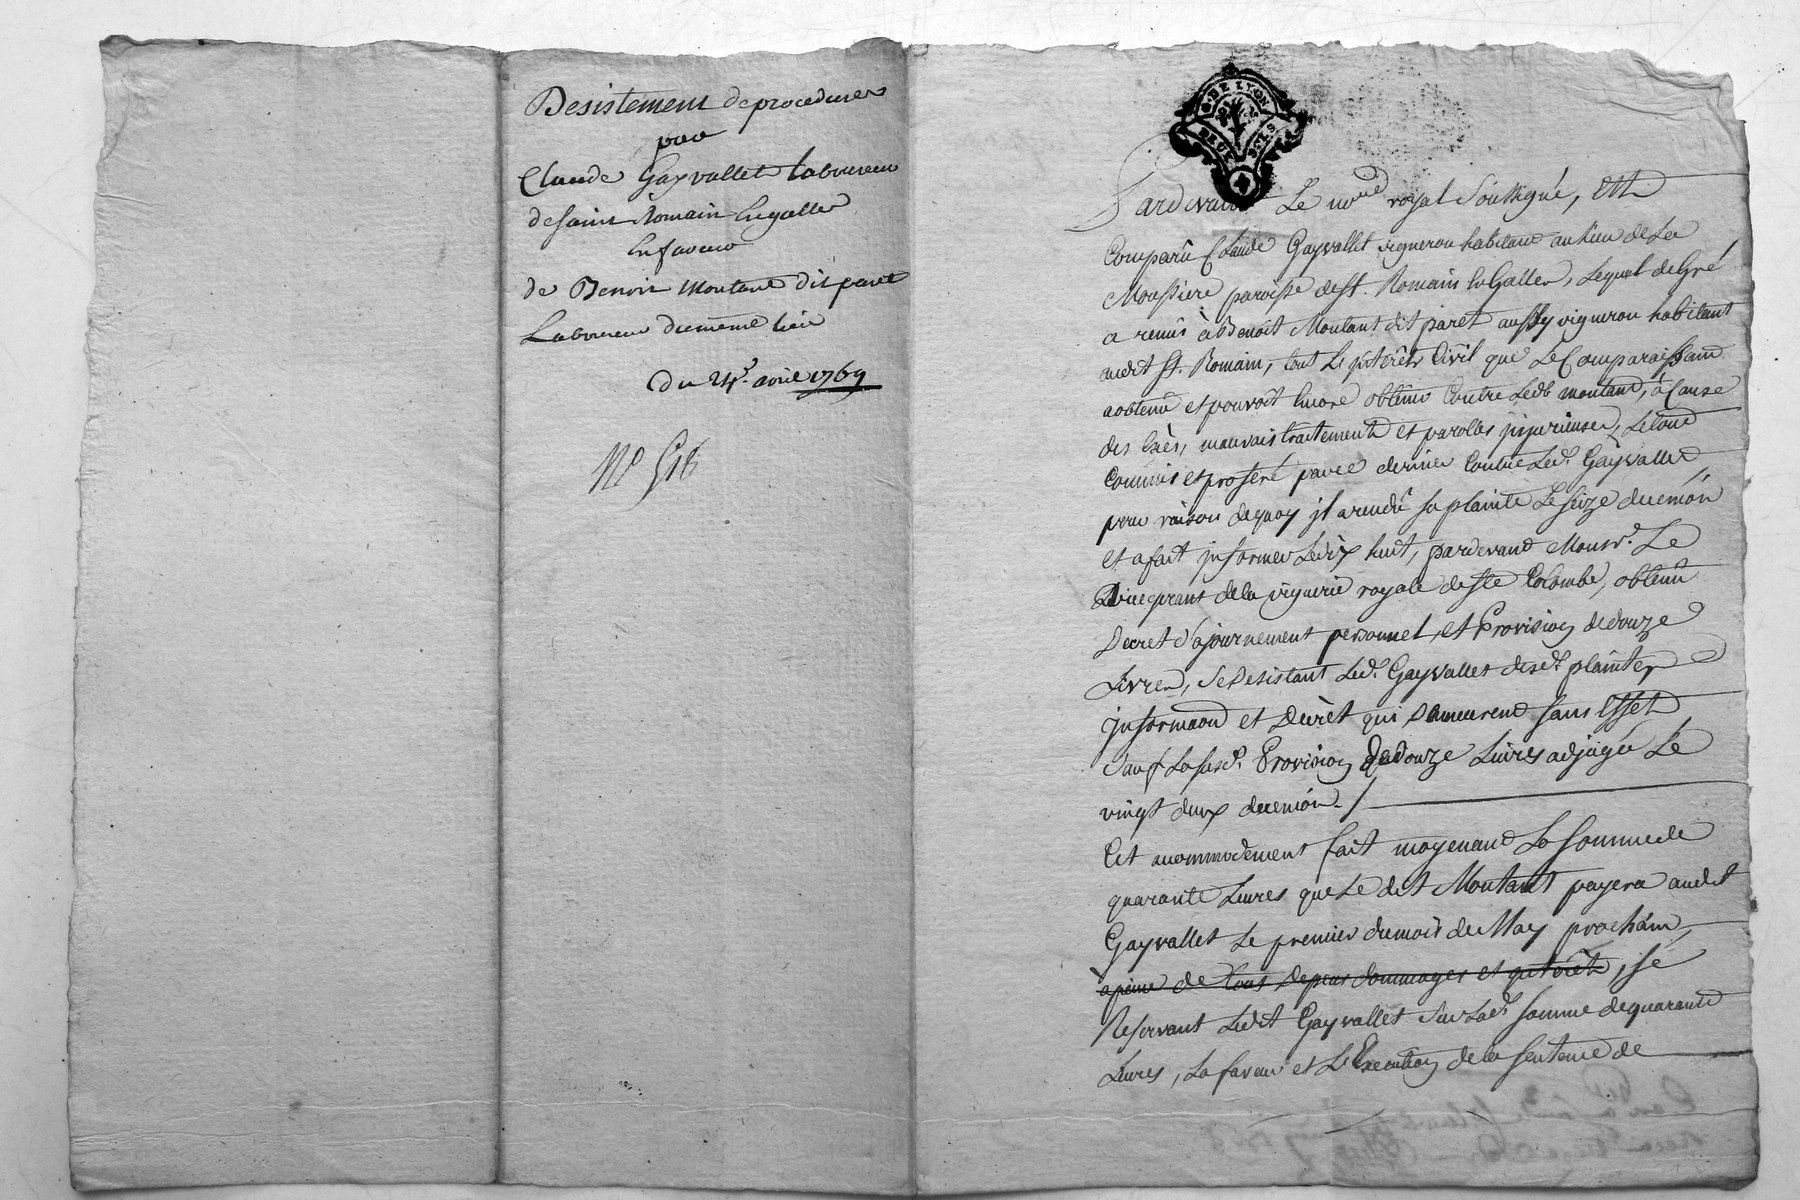 Desistement de procedures
par
Claude Gayvallet laboureur
de saint Romain Engaller
En faveur
de Benoit Montant dit paret
Laboureur du meme lieu
Du 24e. avril 1769
No 518
G. DE LYON
DEUX SOLS
4
Pardevant Le no.re royal Soussigné, Est
Comparû Claude Gayvallet vigneron habitant au lieu de La
Moussiere paroisse de St. Romain En Galler, Lequel de Gré
a remis à Benoit Montant dit paret aussy vigneron habitant
audit St. Romain, tous Les jnterêts Civil que Le Comparaissant
a obtenu et pouvoit Encore obtenir Contre Ledt montant, à Cause
des Exès, mauvais traitements et paroles jnjurieuses, Le tout
Commis et proferé par ce dernier Contre Led. Gayvallet
pour raison de quoy jl a rendû sa plainte Le seize du cmois
et a fait jnformer Le dix huit, pardevant Monsr. Le
Lieu de la viguerie royale de Ste Colombe, obtenu
Decret d'ajournement personnel, et Provision de douze
Livres, se Desistant Led. Gayvallet desd. plainte,
jnformaon et Decrèt qui Demeurent sans Effet
Sauf La susd. Provision de douze Livres adjugée Le
vingt deux du cmois. /
Cet accommodement fait moyenant La somme de
quarante Livres que Le dit Montant payera audit
Gayvallet Le premier du mois de May prochain,
à peine de tous Depens dommages et jnterêts, se
Reservant Ledit Gayvallet sur Lad. somme de quarante
Livres, La faveur et L'Execution de la sentence de